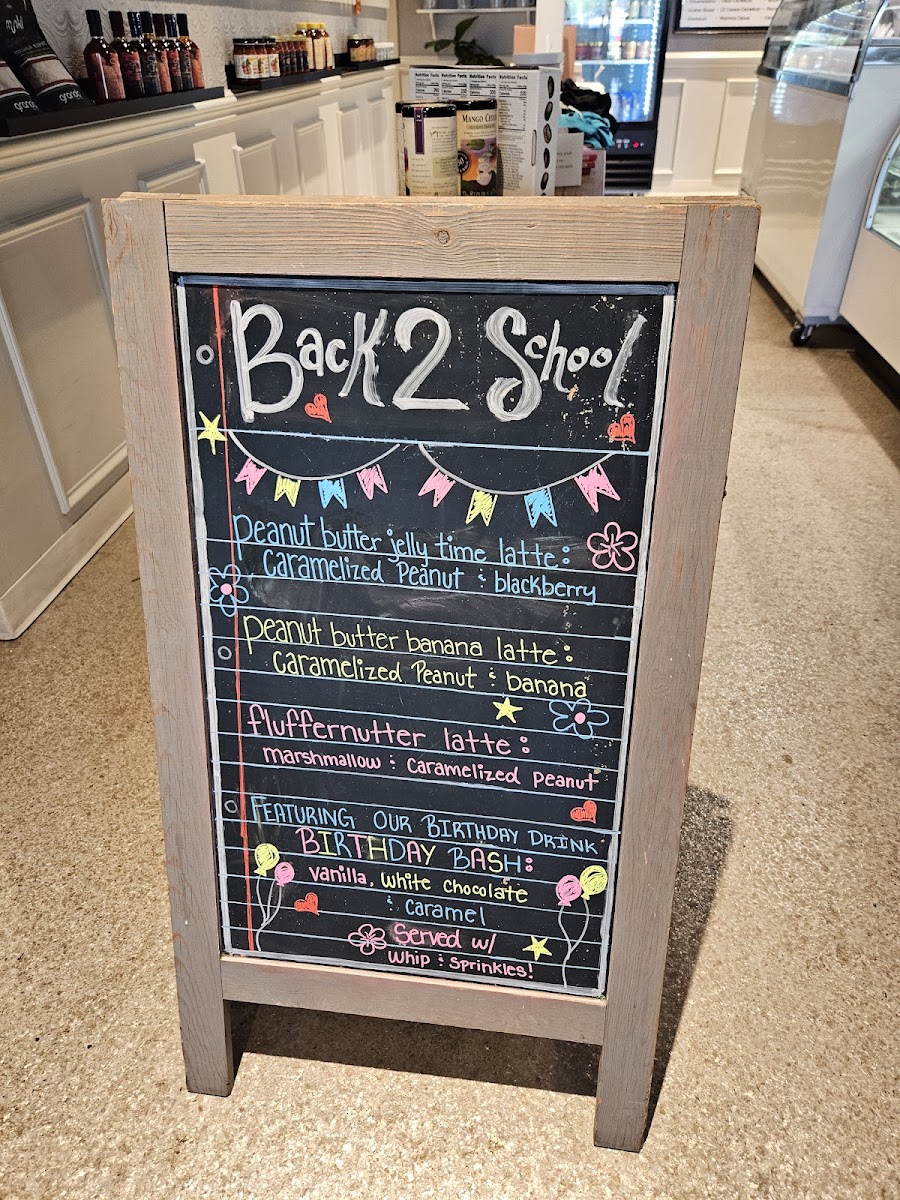 Nutrition Facts
Nutrition Facts
Nutrition Facts
MANGO
Back 2 School
peanut butter jelly time latte:
caramelized Peanut & blackberry
peanut butter banana latte:
caramelized Peanut & banana
fluffernutter latte:
marshmallow & caramelized peanut
FEATURING OUR BIRTHDAY DRINK
BIRTHDAY BASH:
vanilla, white chocolate
& caramel
Served w/
whip & sprinkles!